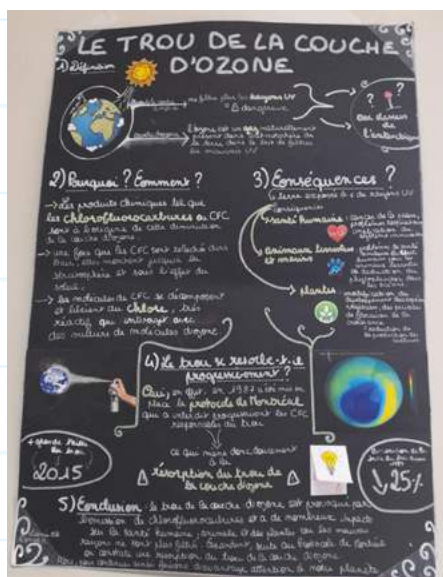 LE TROU DE LA COUCHE
D'OZONE
1) Définition
ne filtre plus les rayons UV
dangereux
couche d'ozone
l'ozone est un gaz naturellement
présent dans l'atmosphère de
la terre dans le but de filtrer
les mauvais UV
? ?
Au dessus
de
l'antarctique
2) Pourquoi ? Comment ?
→ Les produits chimiques tel que
les chlorofluorocarbures ou CFC
sont à l'origine de cette diminution
de la couche d'ozone
→ une fois que les CFC sont relâché dans
l'air, elles montent jusque la
stratosphère et sous l'effet du
soleil :
→ les molécules de CFC se décomposent
et libèrent du chlore, très
réactif qui interagit avec
des milliers de molécules d'ozone
3) Conséquences ?
terre exposée à + de rayons UV
conséquences
santé humaine : cancer de la peau,
animaux terrestres
et marins
plantes :
4) Le trou se résorbe-t-il
progressivement ?
Oui, en effet, en 1987 a été mis en
place le protocole de Montréal
qui a interdit progressivement les CFC
responsables du trou
ce qui mène doucement
à la
résorption du trou de
la couche d'ozone
+ grande taille
du trou
2015
↓ 25%
5) Conclusion : le trou de la couche d'ozone est provoqué par
l'émission de chlorofluorocarbures et a de nombreux impacts
sur la santé humaine, animale et des plantes car les mauvais
rayons ne sont plus filtrés. Cependant, suite au Protocole de Montréal
on constate une résorption du trou de la couche d'ozone
davantage attention à notre planète